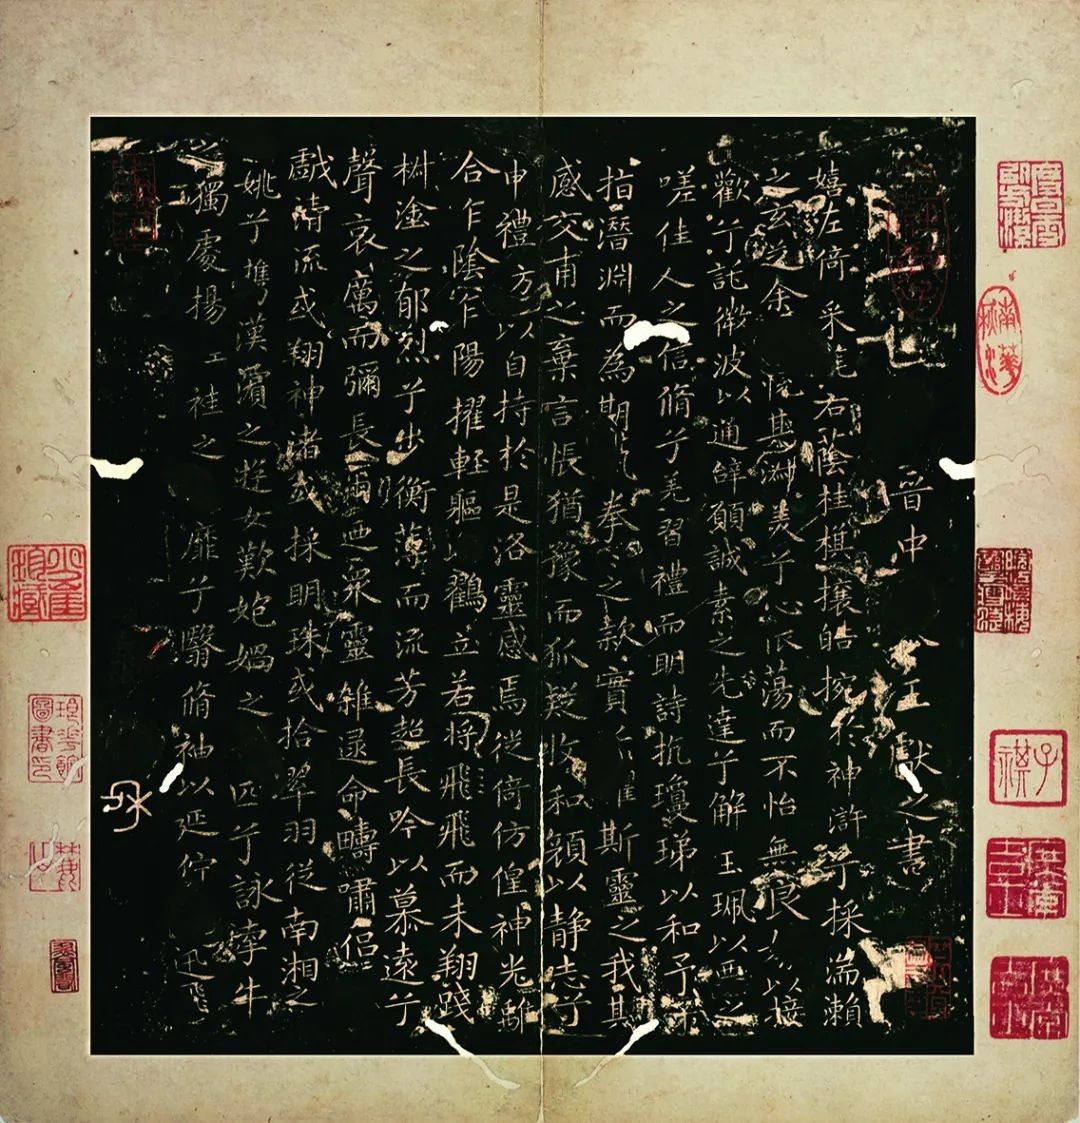 晉中令王獻之書
嬉左倚采旄右蔭桂旗攘皓捥於神滸兮採湍瀨
之玄芝余悅其淑美兮心振蕩而不怡無良以接
歡兮託微波以通辭願誠素之先達兮解玉珮以要之
嗟佳人之信脩兮羌習禮而明詩抗瓊珶以和予兮
指潛淵而為期執拳之款實兮懼斯靈之我其
感交甫之棄言悵猶豫而狐疑收和顏以靜志兮
申禮方以自持於是洛靈感焉徙倚仿偟神光離
合乍陰乍陽擢輕軀以鶴立若將飛飛而未翔踐
椒塗之郁烈兮步衡薄而流芳超長吟以慕遠兮
聲哀厲而彌長爾迺眾靈雜遝命疇嘯侶
戲清流或翔神渚或採明珠或拾翠羽從南湘之
姚兮攜漢濱之遊女歎匏媧之匹兮詠牽牛
之獨處揚袿之靡兮翳脩袖以延佇迅飛
子祺